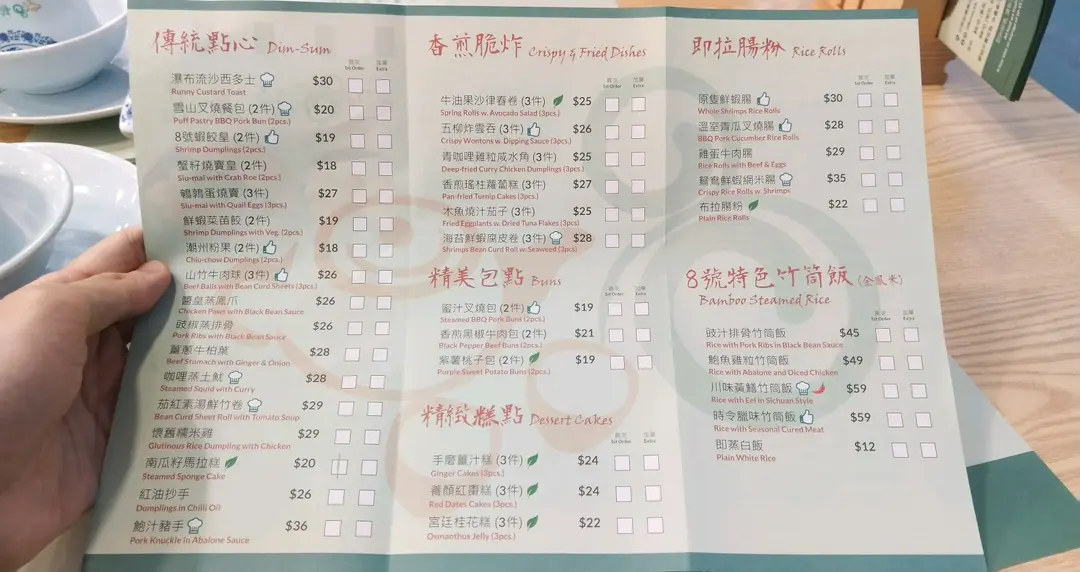 傳統點心 Dim-Sum
首次 加單
1st Order Extra
瀑布流沙西多士 $30
Runny Custard Toast
雪山叉燒餐包 (2件) $20
Puff Pastry BBQ Pork Bun (2pcs.)
8號蝦餃皇 (2件) $19
Shrimp Dumplings (2pcs.)
蟹籽燒賣皇 (2件) $18
Siu-mai with Crab Roe (2pcs.)
鵪鶉蛋燒賣 (3件) $27
Siu-mai with Quail Eggs (3pcs.)
鮮蝦菜苗餃 (2件) $19
Shrimp Dumplings with Veg. (2pcs.)
潮州粉果 (2件) $18
Chiu-chow Dumplings (2pcs.)
山竹牛肉球 (3件) $26
Beef Balls with Bean Curd Sheets (3pcs.)
醬皇蒸鳳爪 $26
Chicken Paws with Black Bean Sauce
豉椒蒸排骨 $26
Pork Ribs with Black Bean Sauce
薑蔥牛柏葉 $28
Beef Stomach with Ginger & Onion
咖哩蒸土魷 $28
Steamed Squid with Curry
茄紅素湯鮮竹卷 $29
Bean Curd Sheet Roll with Tomato Soup
懷舊糯米雞 $29
Glutinous Rice Dumpling with Chicken
南瓜籽馬拉糕 $20
Steamed Sponge Cake
紅油抄手 $26
Dumplings in Chilli Oil
鮑汁豬手 $36
Pork Knuckle in Abalone Sauce
香煎脆炸 Crispy & Fried Dishes
首次 加單
1st Order Extra
牛油果沙律春卷 (3件) $25
Spring Rolls w. Avocado Salad (3pcs.)
五柳炸雲吞 (3件) $26
Crispy Wontons w. Dipping Sauce (3pcs.)
青咖哩雞粒咸水角 (3件) $25
Deep-fried Curry Chicken Dumplings (3pcs.)
香煎瑤柱蘿蔔糕 (3件) $27
Pan-fried Turnip Cakes (3pcs.)
木魚燒汁茄子 (3件) $25
Fried Eggplants w. Dried Tuna Flakes (3pcs.)
海苔鮮蝦腐皮卷 (3件) $28
Shrimps Bean Curd Roll w. Seaweed (3pcs.)
精美包點 Buns
首次 加單
1st Order Extra
蜜汁叉燒包 (2件) $19
Steamed BBQ Pork Buns (2pcs.)
香煎黑椒牛肉包 (2件) $21
Black Pepper Beef Buns (2pcs.)
紫薯桃子包 (2件) $19
Purple Sweet Potato Buns (2pcs.)
精緻糕點 Dessert Cakes
首次 加單
1st Order Extra
手磨薑汁糕 (3件) $24
Ginger Cakes (3pcs.)
養顏紅棗糕 (3件) $24
Red Dates Cakes (3pcs.)
宮廷桂花糕 (3件) $22
Osmanthus Jelly (3pcs.)
即拉腸粉 Rice Rolls
首次 加單
1st Order Extra
原隻鮮蝦腸 $30
Whole Shrimps Rice Rolls
溫室青瓜叉燒腸 $28
BBQ Pork Cucumber Rice Rolls
雞蛋牛肉腸 $29
Rice Rolls with Beef & Eggs
鴛鴦鮮蝦網米腸 $35
Crispy Rice Rolls w. Shrimps
布拉腸粉 $22
Plain Rice Rolls
8號特色竹筒飯 (金鳳米)
Bamboo Steamed Rice
首次 加單
1st Order Extra
豉汁排骨竹筒飯 $45
Rice with Pork Ribs in Black Bean Sauce
鮑魚雞粒竹筒飯 $49
Rice with Abalone and Diced Chicken
川味黃鱔竹筒飯 $59
Rice with Eel in Sichuan Style
時令臘味竹筒飯 $59
Rice with Seasonal Cured Meat
即蒸白飯 $12
Plain White Rice